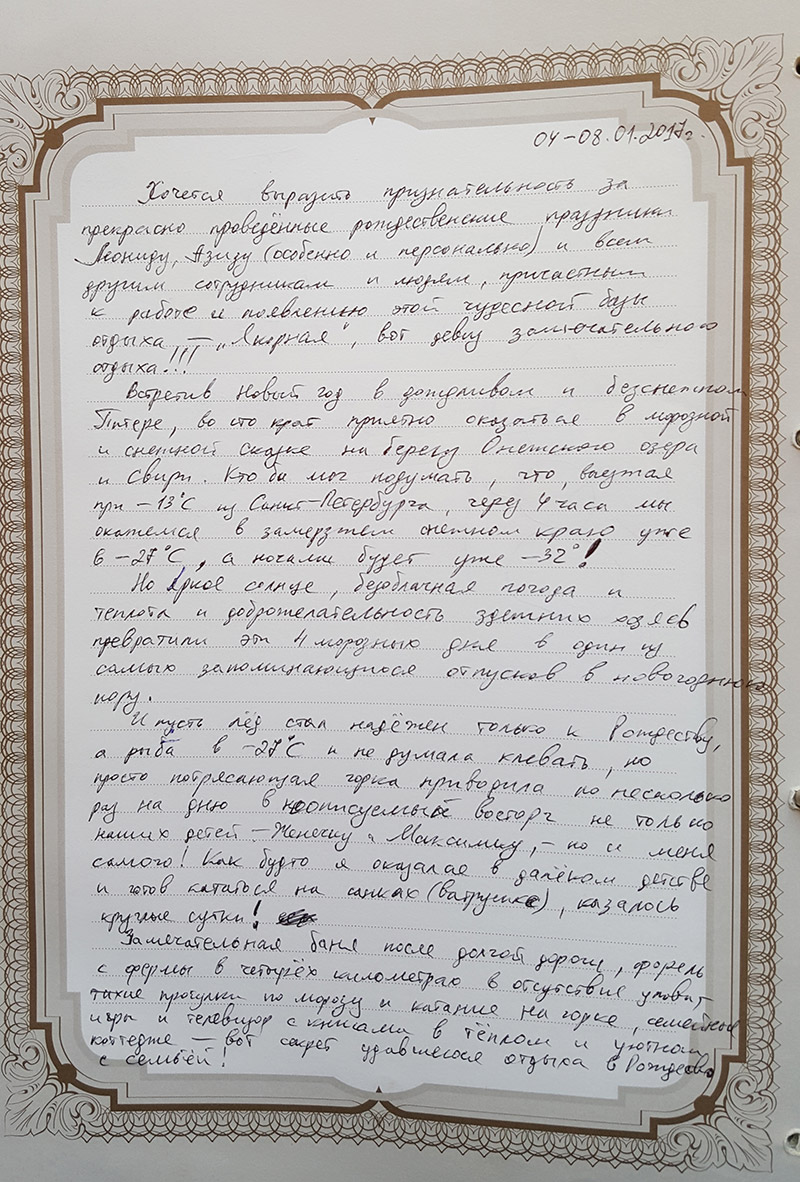 04–08.01.2017г.
Хочется выразить признательность за
прекрасно проведённые рождественские праздники
Леониду, Азизу (особенно и персонально) и всем
другим сотрудникам и людям, причастным
к работе и появлению этой чудесной базы
отдыха, – „Якорная", вот девиз замечательного
отдыха!!!
Встретив Новый год в дождливом и безснежном
Питере, во сто крат приятно оказаться в морозной
и снежной сказке на берегу Онежского озера
и Свири. Кто бы мог подумать, что, выезжая
при –13°С из Санкт-Петербурга, через 4 часа мы
окажемся в замерзшем снежном краю уже
в –27°С, а ночами будет уже –32°!
Но яркое солнце, безоблачная погода и
теплота и доброжелательность здешних хозяев
превратили эти 4 морозных дня в один из
самых запоминающихся отпусков в новогоднюю
пору.
И пусть лёд стал надёжен только к Рождеству,
а рыба в –27°С и не думала клевать, но
просто потрясающая горка приводила по несколько
раз на дню в неописуемый восторг не только
наших детей – Женечку и Максимку, – но и меня
самого! Как будто я оказался в далёком детстве
и готов кататься на санках (ватрушке), казалось
круглые сутки!
Замечательная баня после долгой дороги, форель
с фермы в четырёх километрах в отсутствие улова,
тихие прогулки по морозу и катание на горке, семейные
игры и телевизор с книгами в тёплом и уютном
коттедже – вот секрет удавшегося отдыха в Рождество
с семьёй!